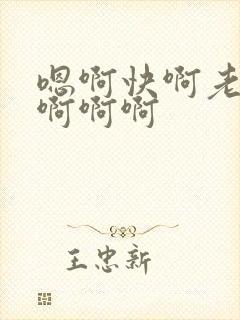 嗯啊快啊老
啊啊啊
王忠新